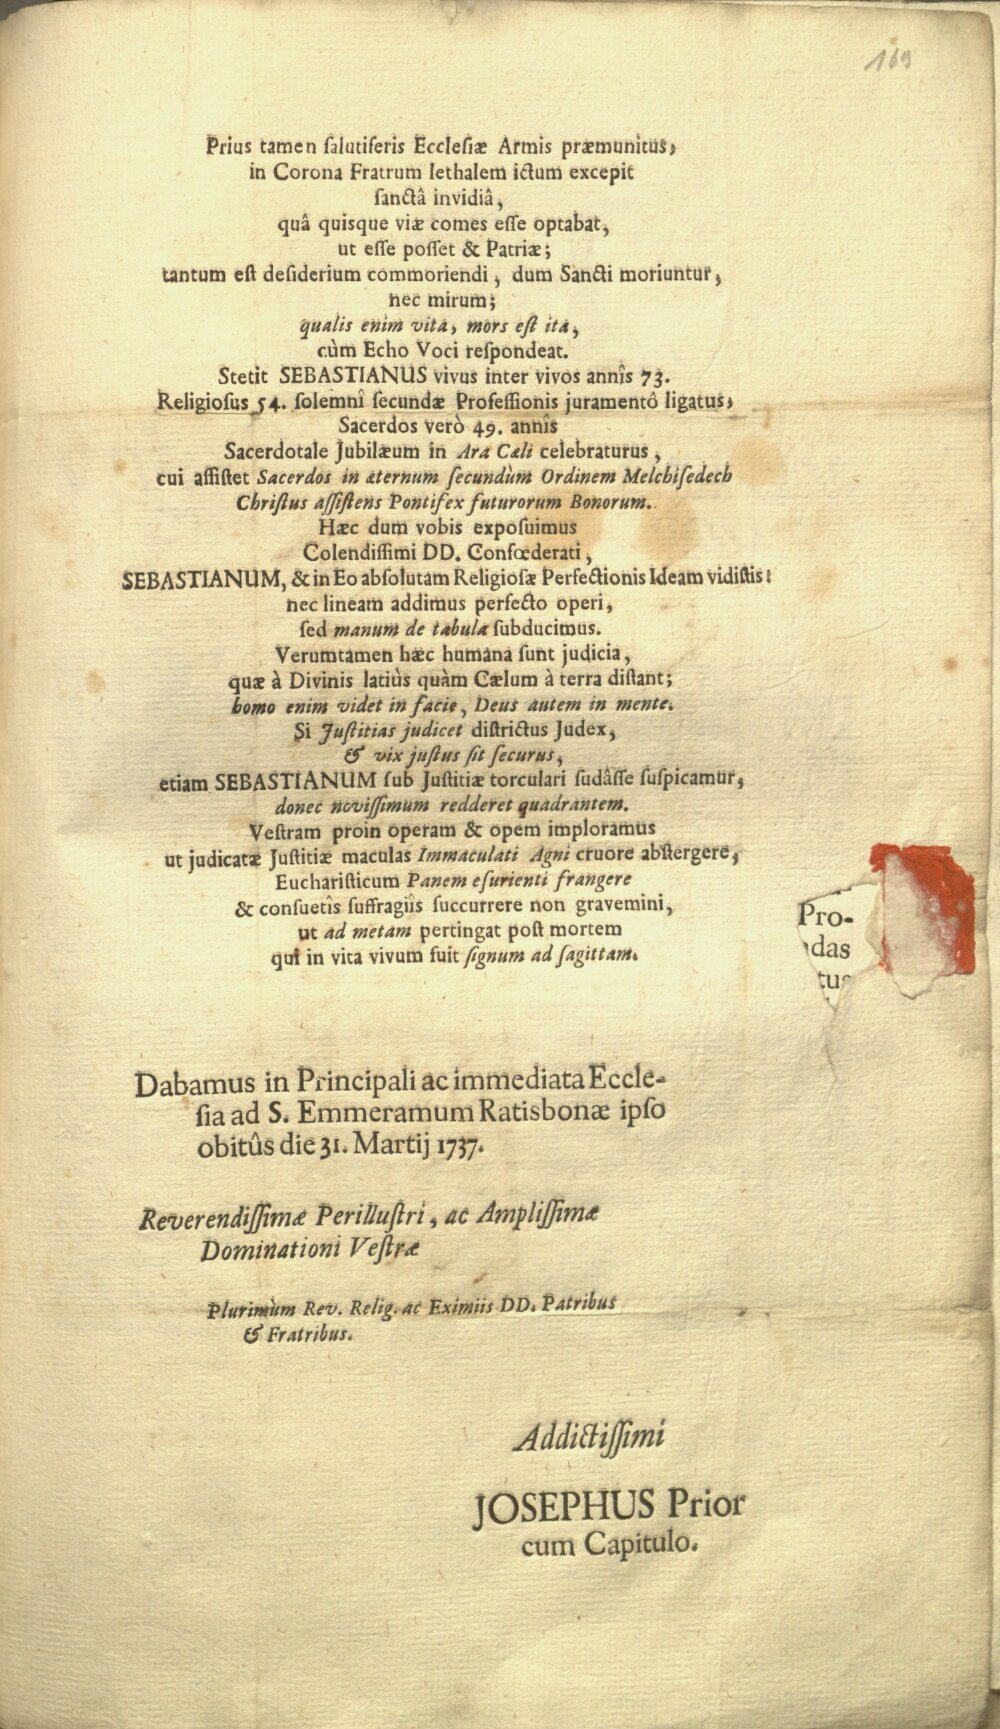 169
Prius tamen salutiferis Ecclesiæ Armis præmunitus,
in Corona Fratrum lethalem ictum excepit
sanctâ invidiâ,
quâ quisque viæ comes esse optabat,
ut esse posset & Patriæ;
tantum est desiderium commoriendi, dum Sancti moriuntur,
nec mirum;
qualis enim vita, mors est ita,
cùm Echo Voci respondeat.
Stetit SEBASTIANUS vivus inter vivos annîs 73.
Religiosus 54. solemnî secundæ Professionis juramentô ligatus,
Sacerdos verò 49. annîs
Sacerdotale Jubilæum in Ara Cæli celebraturus,
cui assistet Sacerdos in æternum secundùm Ordinem Melchisedech
Christus assistens Pontifex futurorum Bonorum.
Hæc dum vobis exposuimus
Colendissimi DD. Confœderati,
SEBASTIANUM, & in Eo absolutam Religiosæ Perfectionis Ideam vidistis:
nec lineam addimus perfecto operi,
sed manum de tabula subducimus.
Verumtamen hæc humana sunt judicia,
quæ à Divinis latiùs quàm Cælum à terra distant;
homo enim videt in facie, Deus autem in mente.
Si Justitias judicet districtus Judex,
& vix justus sit securus,
etiam SEBASTIANUM sub Justitiæ torculari sudâsse suspicamur,
donec novissimum redderet quadrantem.
Vestram proin operam & opem imploramus
ut judicatæ Justitiæ maculas Immaculati Agni cruore abstergere,
Eucharisticum Panem esurienti frangere
& consuetîs suffragiîs succurrere non gravemini,
ut ad metam pertingat post mortem
qui in vita vivum fuit signum ad sagittam.
Pro-
das
tus
Dabamus in Principali ac immediata Eccle-
sia ad S. Emmeramum Ratisbonæ ipso
obitûs die 31. Martij 1737.
Reverendissimæ Perillustri, ac Amplissimæ
Dominationi Vestræ
Plurimùm Rev. Relig. ac Eximiis DD. Patribus
& Fratribus.
Addictissimi
JOSEPHUS Prior
cum Capitulo.